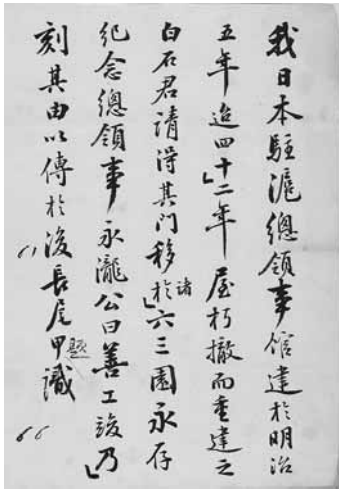 我日本駐滬總領事館建於明治
五年迨四十二年屋朽撤而重建之
白石君請得其门移於諸六三園永存
紀念總領事永瀧公曰善工竣乃
刻其由以傳於後長尾甲題識